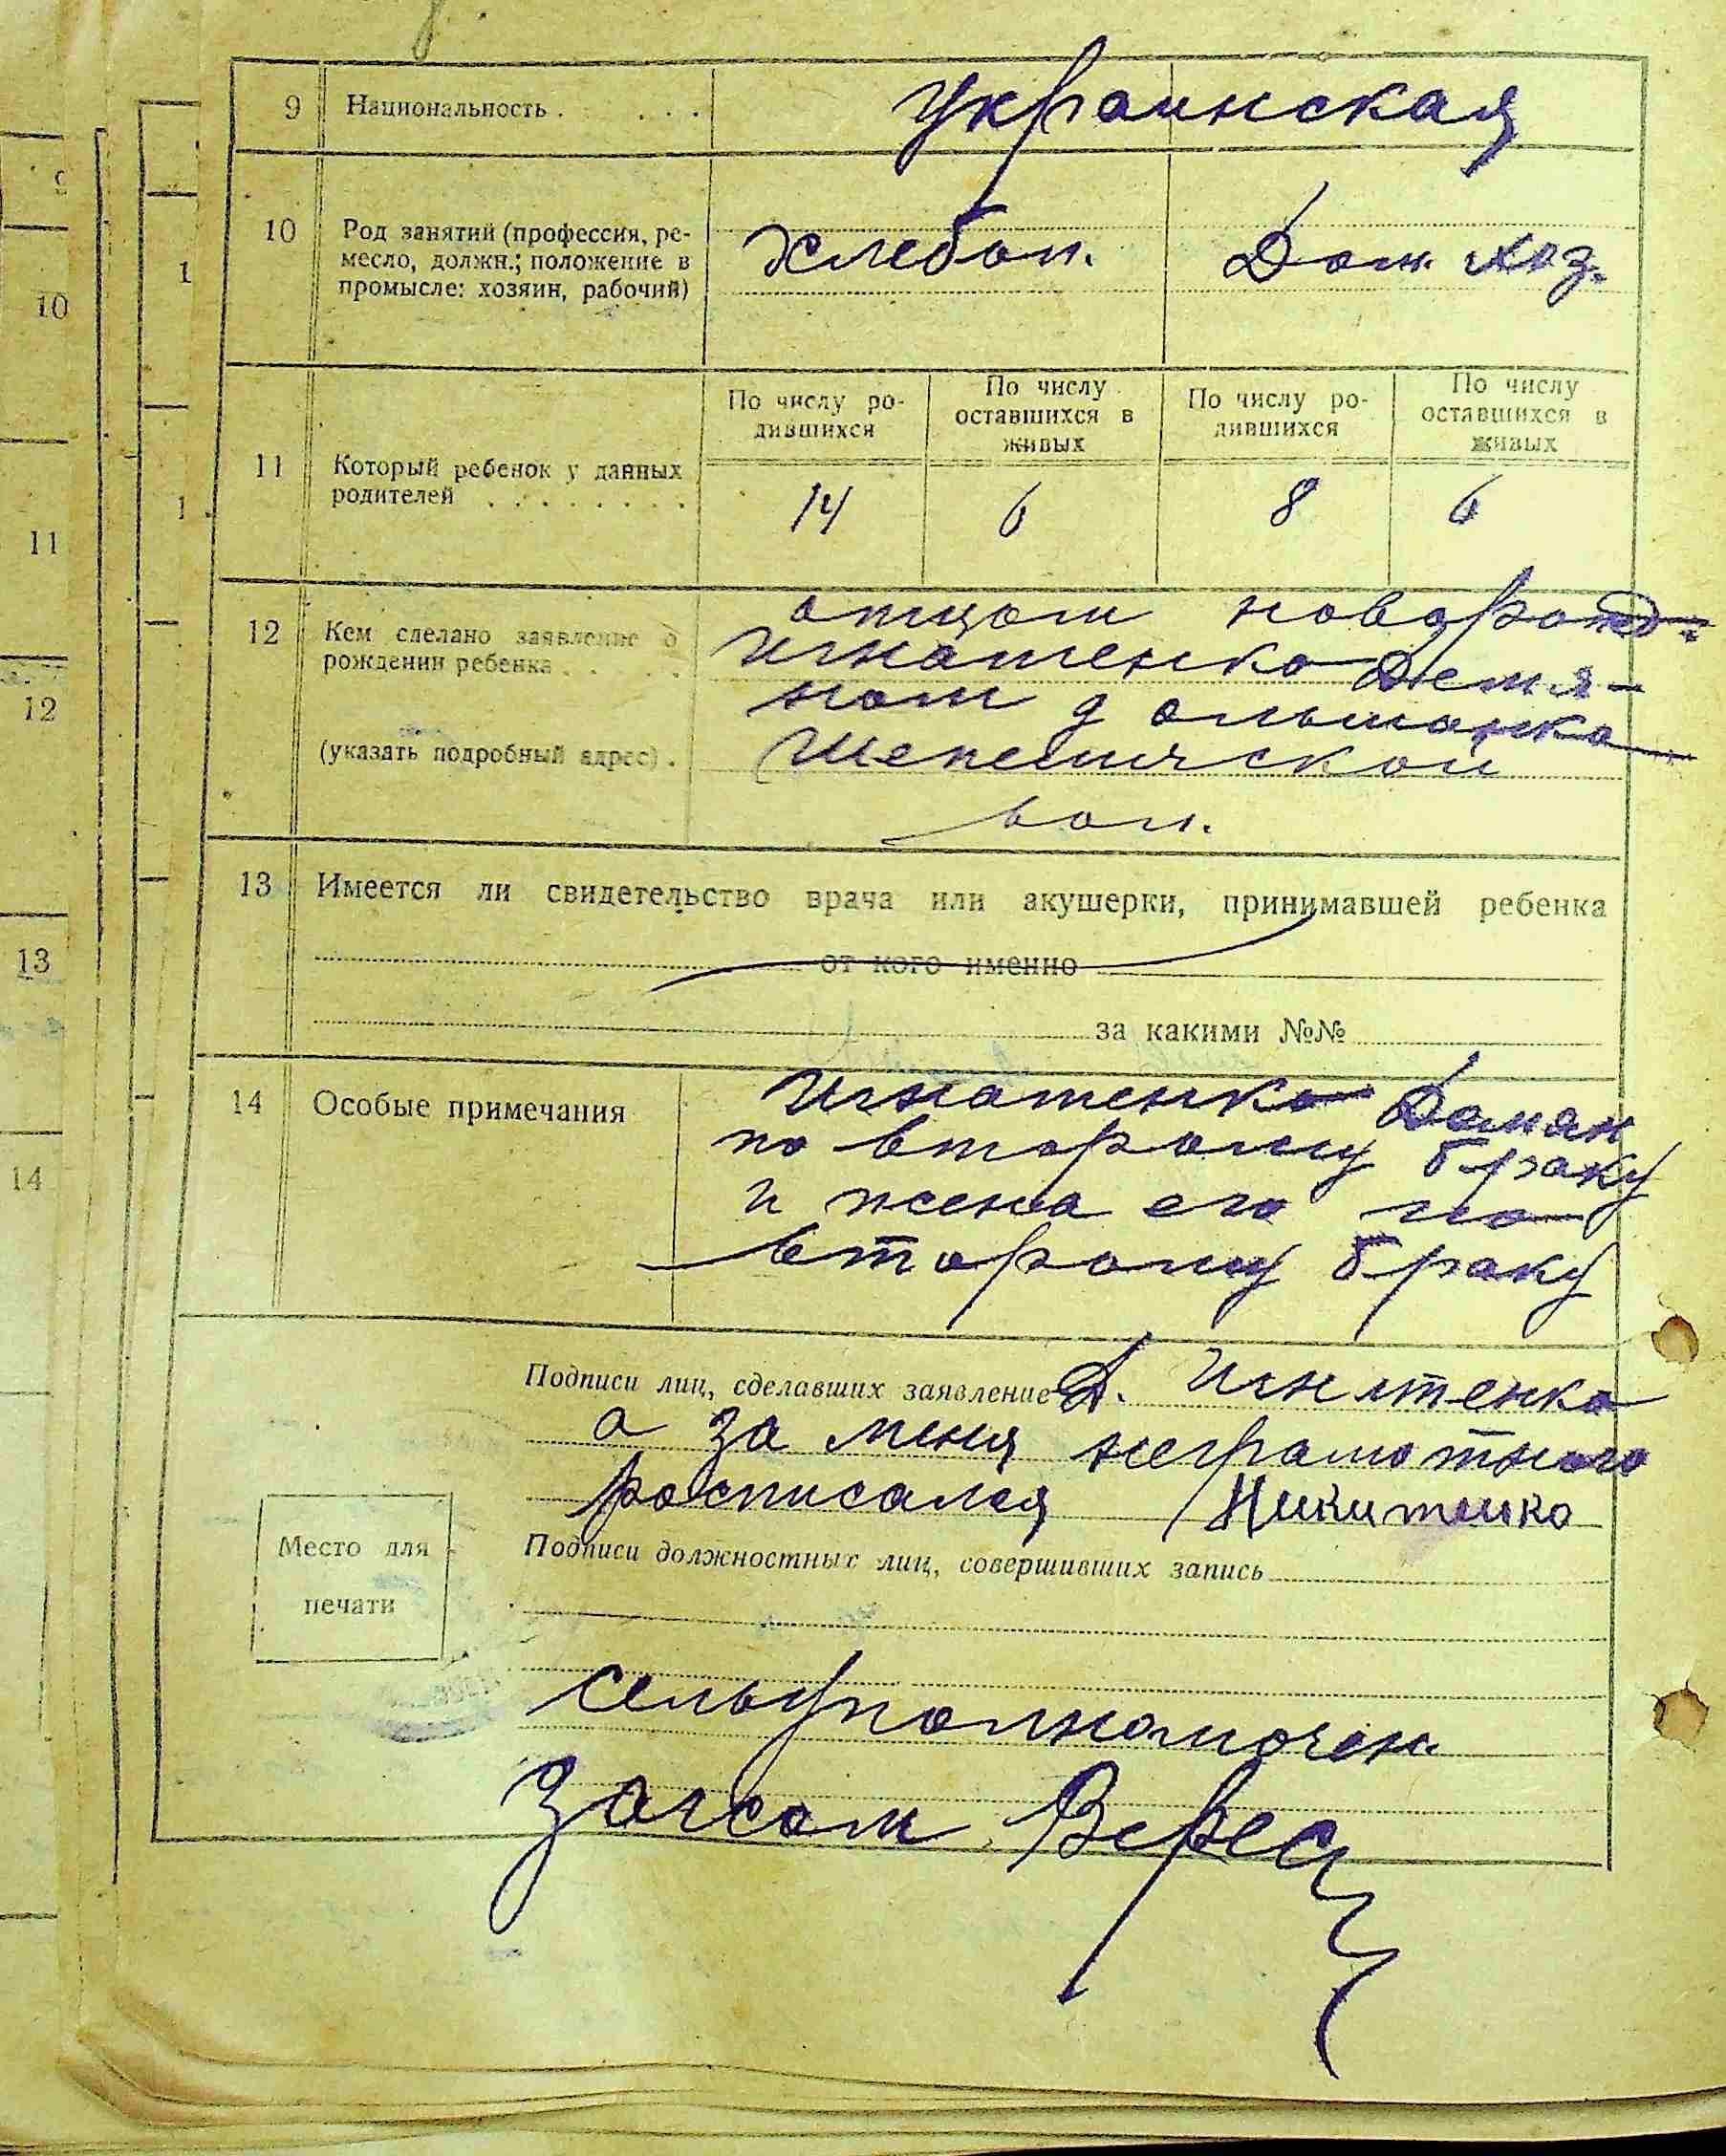 9 Национальность . . . . украинская
10 Род занятий (профессия, ре-
месло, должн.; положение в
промысле: хозяин, рабочий)
хлебоп. Дом. хоз.
11 Который ребенок у данных
родителей . . . . . . . .
По числу ро-
дившихся
По числу
оставшихся в
живых
По числу ро-
дившихся
По числу
оставшихся в
живых
14 6 8 6
12 Кем сделано заявление о
рождении ребенка . . . .
(указать подробный адрес) .
отцом новорожд.
Игнатенко Демя-
ном д ольшанка
Шепеличской
вол.
13 Имеется ли свидетельство врача или акушерки, принимавшей ребенка
от кого именно
за какими №№
14 Особые примечания
Игнатенко Демян
по второму браку
и жена его по
второму браку
Подписи лиц, сделавших заявление Д. Игнатенко
а за меня неграмотного
росписался Никитенко
Место для
печати
Подписи должностных лиц, совершивших запись
сельуполномочен.
Загсом Верес
9
10
11
12
13
14
1
1